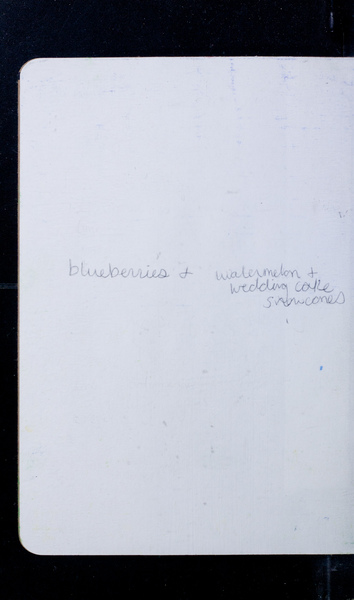 blueberries + watermelon +
wedding cake
snowcones